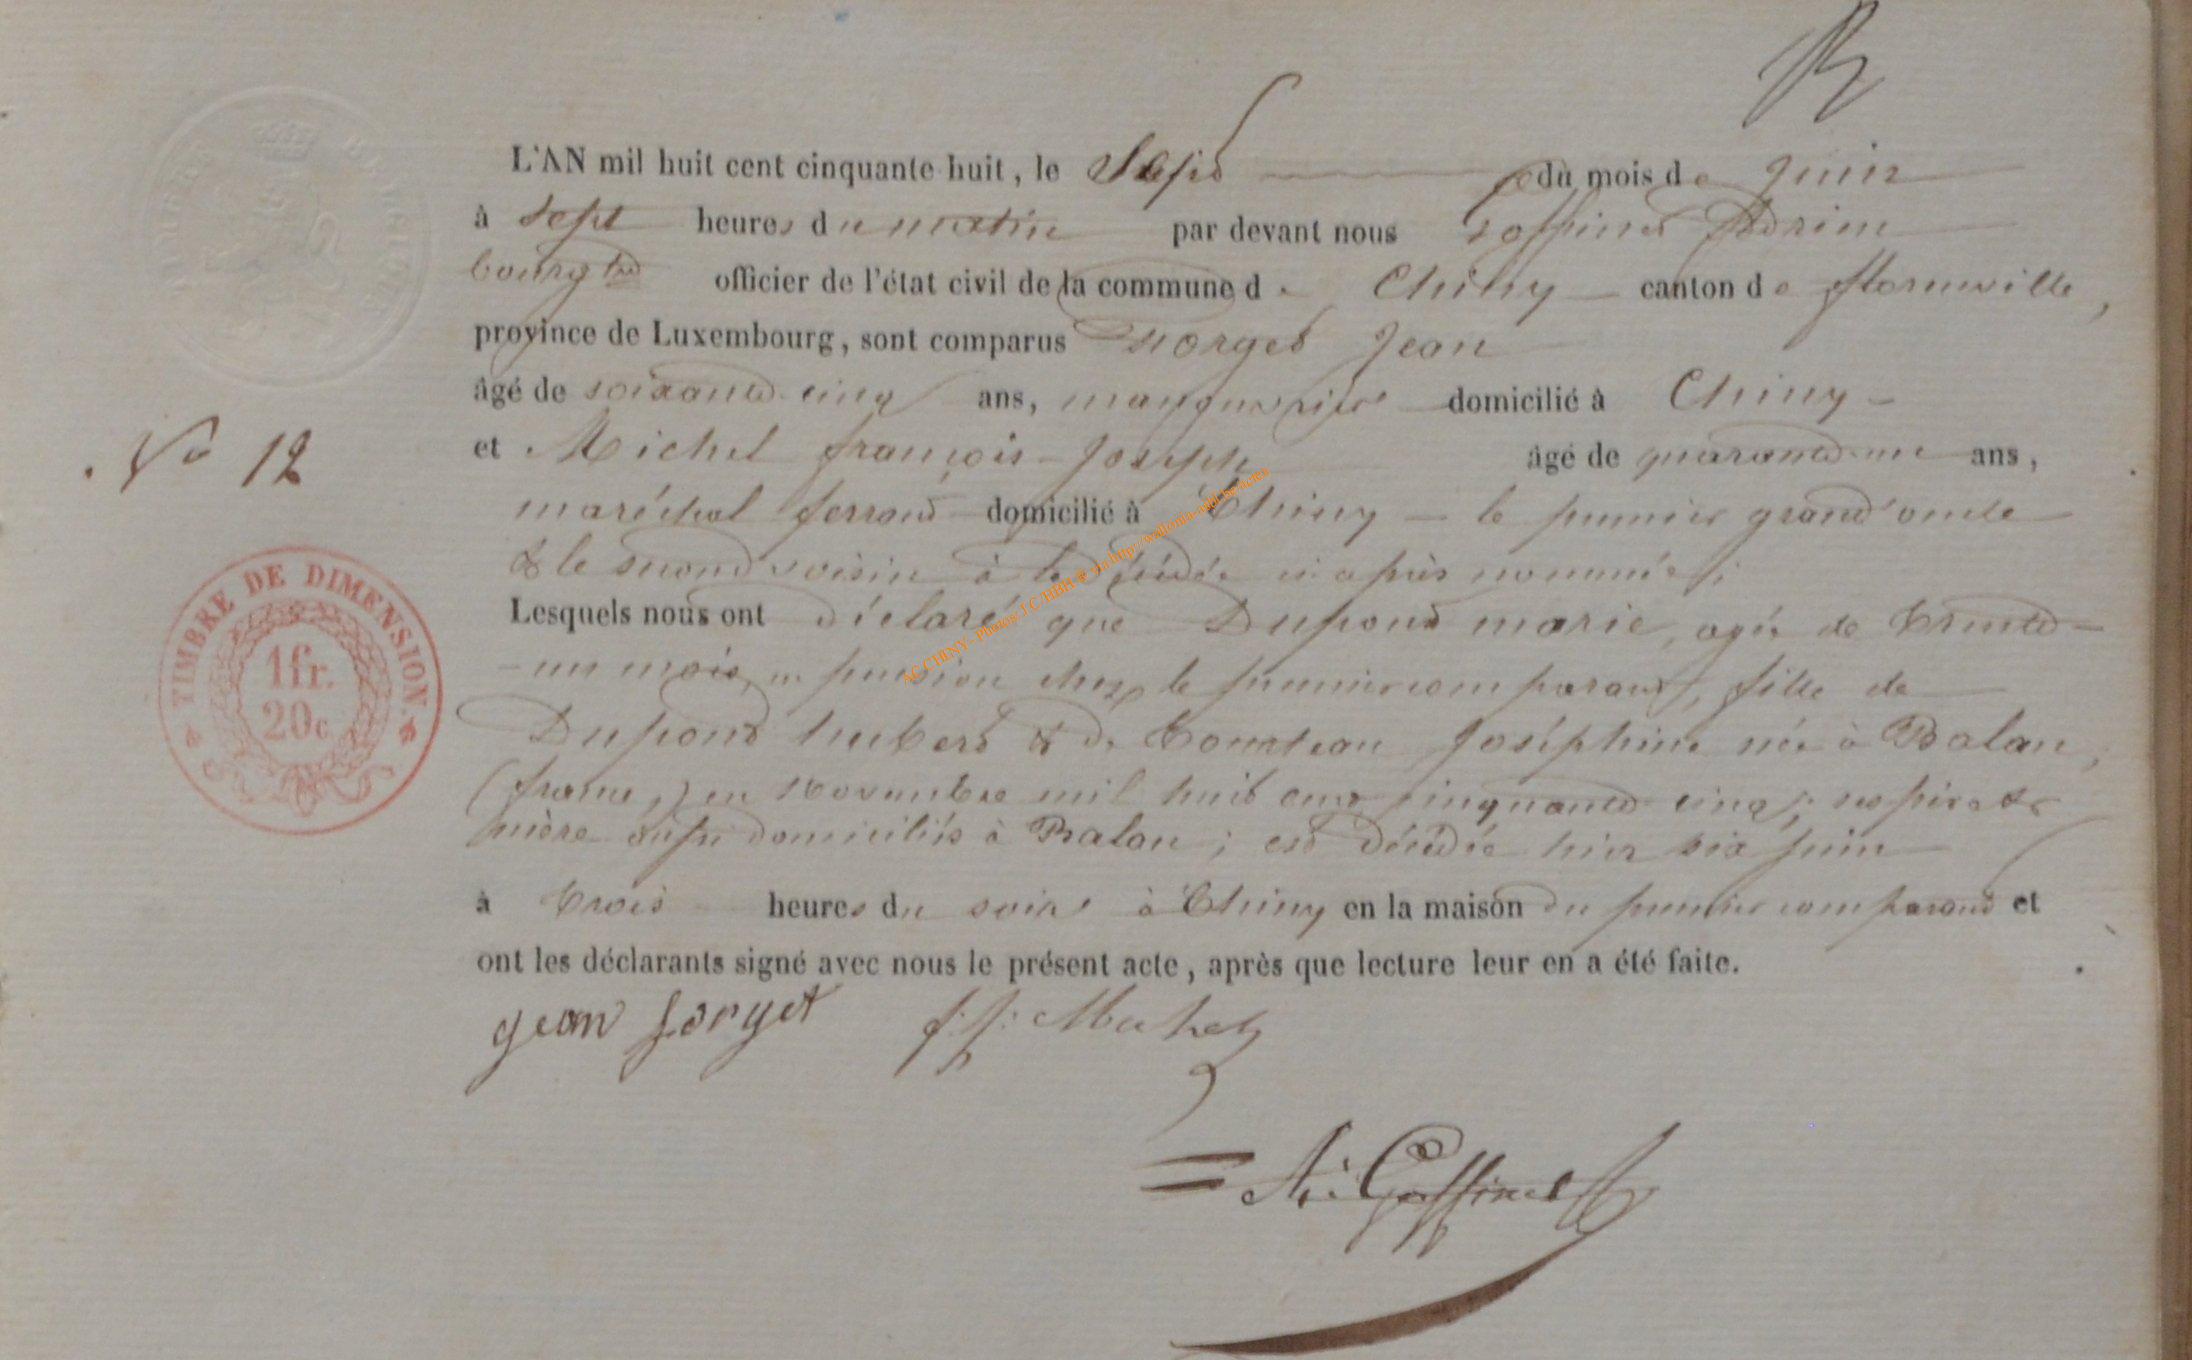 L'AN mil huit cent cinquante huit, le Sept du mois de Juin
à sept heures du matin par devant nous Goffinet Adrien
bourgtre officier de l'état civil de la commune de Chiny canton de florenville,
province de Luxembourg, sont comparus Jean
âgé de soixante-cinq ans, manouvrier domicilié à Chiny
et Michel françois-Joseph âgé de quarante-un ans,
maréchal ferrant domicilié à Chiny le premier grand'oncle
& le second voisin à la décédée ci après nommée;
Lesquels nous ont déclaré que Dupont marie, agée de trente-
-un mois, en pension chez le premier comparant, fille de
Dupont hubert & de Joséphine née à Balan,
(france,) en Novembre mil huit cent cinquante cinq; ses père et
mère aussi domiciliés à Balan; est décédée hier six juin
à trois heures du soir à Chiny en la maison du premier comparant et
ont les déclarants signé avec nous le présent acte, après que lecture leur en a été faite.
No 12
TIMBRE DE DIMENSION.
1fr.
20c
AC CHINY - Photos J.C/HBH @ via http://wallonia-asbl.be/actes
jean forget f: j: Michel
A: Goffinet